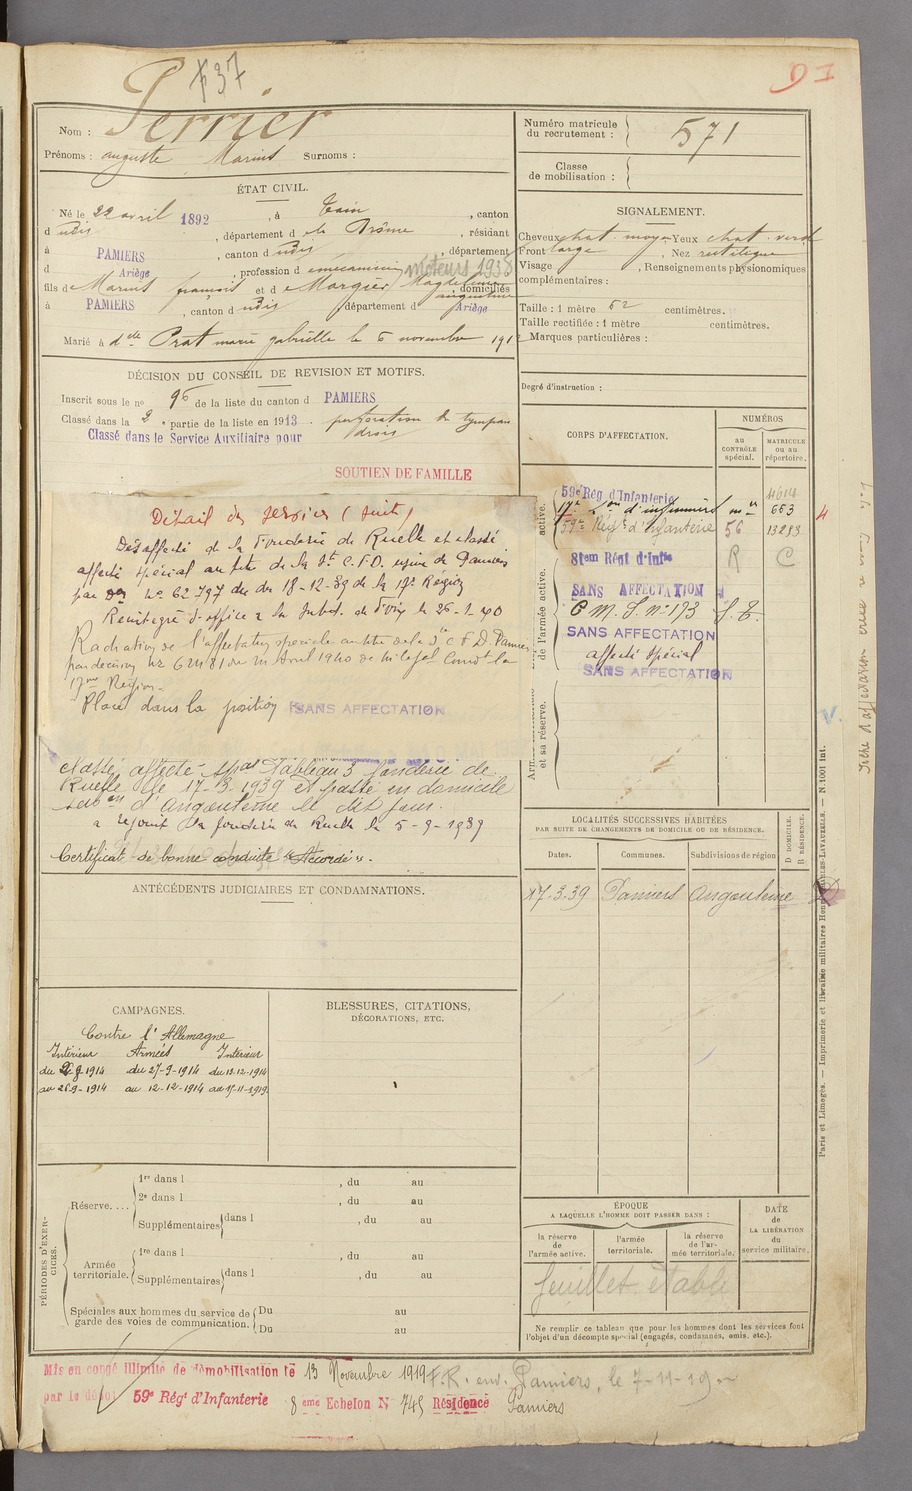 F 37
D I
Nom : Perrier
Prénoms : auguste Marius Surnoms :
Numéro matricule du recrutement : 571
Classe de mobilisation :
ÉTAT CIVIL.
Né le 22 avril 1892, à Tain, canton
d udis, département d e la Drôme, résidant
à PAMIERS, canton d udis, département
d Ariège, profession d e mécanicien moteurs 1938
fils de Marius françois et de Margier Magdeleine augustine, domiciliés
à PAMIERS, canton d udis, département d Ariège
Marié à dlle Prat marie gabrielle le 5 novembre 191
SIGNALEMENT.
Cheveux chat. moyen Yeux chat. verd
Front large, Nez rectiligne
Visage , Renseignements physionomiques
complémentaires :
Taille : 1 mètre 62 centimètres.
Taille rectifiée : 1 mètre centimètres.
Marques particulières :
Degré d'instruction :
DÉCISION DU CONSEIL DE REVISION ET MOTIFS.
Inscrit sous le no 96 de la liste du canton d PAMIERS
Classé dans la 2e partie de la liste en 1913. perforation du tympan
Classé dans le Service Auxiliaire pour droit
SOUTIEN DE FAMILLE
Détail des services (suite)
Désaffecté de la Fonderie de Ruelle et classé
affecté spécial au titre de la Sté C.F.D. usine de Pamiers
par Don No 62797 du 18-12-39 de la 17e Région
Réintégré d'office à la Subd. de Foix le 26-1-40
Radiation de l'affectation spéciale au titre de la Sté C F D Pamiers
par décision No 62481 du Avril 1940 de M le Gal Comdt la
17me Région.
Placé dans la position SANS AFFECTATION
classé affecté spal Tableau 3 fonderie de
Ruelle le 17-3-1939 et passé en domicile
subon d'Angoulême le dit jour.
a rejoint la fonderie de Ruelle le 5-9-1939
Certificat de bonne conduite "Accordé".
CORPS D'AFFECTATION.
NUMÉROS
au CONTRÔLE spécial.
MATRICULE ou au répertoire.
active.
59e Rég d'Infanterie 4614
17e on d'infirmiers 653
59e Régt d'Infanterie 56 13293
de l'armée active.
81em Régt d'Infie R C
SANS AFFECTATION
C M. S. no 173 S. E.
SANS AFFECTATION
affecté spécial
SANS AFFECTATION
et sa réserve.
LOCALITÉS SUCCESSIVES HABITÉES
PAR SUITE DE CHANGEMENTS DE DOMICILE OU DE RÉSIDENCE.
Dates. Communes. Subdivisions de région
D DOMICILE. R RÉSIDENCE.
17-3-39 Pamiers Angoulême D
ANTÉCÉDENTS JUDICIAIRES ET CONDAMNATIONS.
CAMPAGNES.
Contre l'Allemagne
Intérieur Armées Intérieur
du 1914 du 27-9-1914 du 13-12-1914
au 26-9-1914 au 12-12-1914 au 15-11-1919
BLESSURES, CITATIONS,
DÉCORATIONS, ETC.
PÉRIODES D'EXERCICES.
Réserve....
1re dans l , du au
2e dans l , du au
Supplémentaires dans l , du au
Armée territoriale.
1re dans l , du au
Supplémentaires dans l , du au
Spéciales aux hommes du service de garde des voies de communication.
Du au
Du au
ÉPOQUE
A LAQUELLE L'HOMME DOIT PASSER DANS :
la réserve de l'armée active.
l'armée territoriale.
la réserve de l'armée territoriale.
DATE de LA LIBÉRATION du service militaire.
feuillet établi
Ne remplir ce tableau que pour les hommes dont les services font
l'objet d'un décompte spécial (engagés, condamnés, omis, etc.).
Mis en congé illimité de démobilisation le 13 Novembre 1919 F.R. env. Pamiers, le 7-11-19
par le dépôt 59e Régt d'Infanterie 8eme Echelon N 745 Résidence Pamiers
Paris et Limoges. — Imprimerie et librairie militaires Henri CHARLES-LAVAUZELLE. — N. 1001 int.